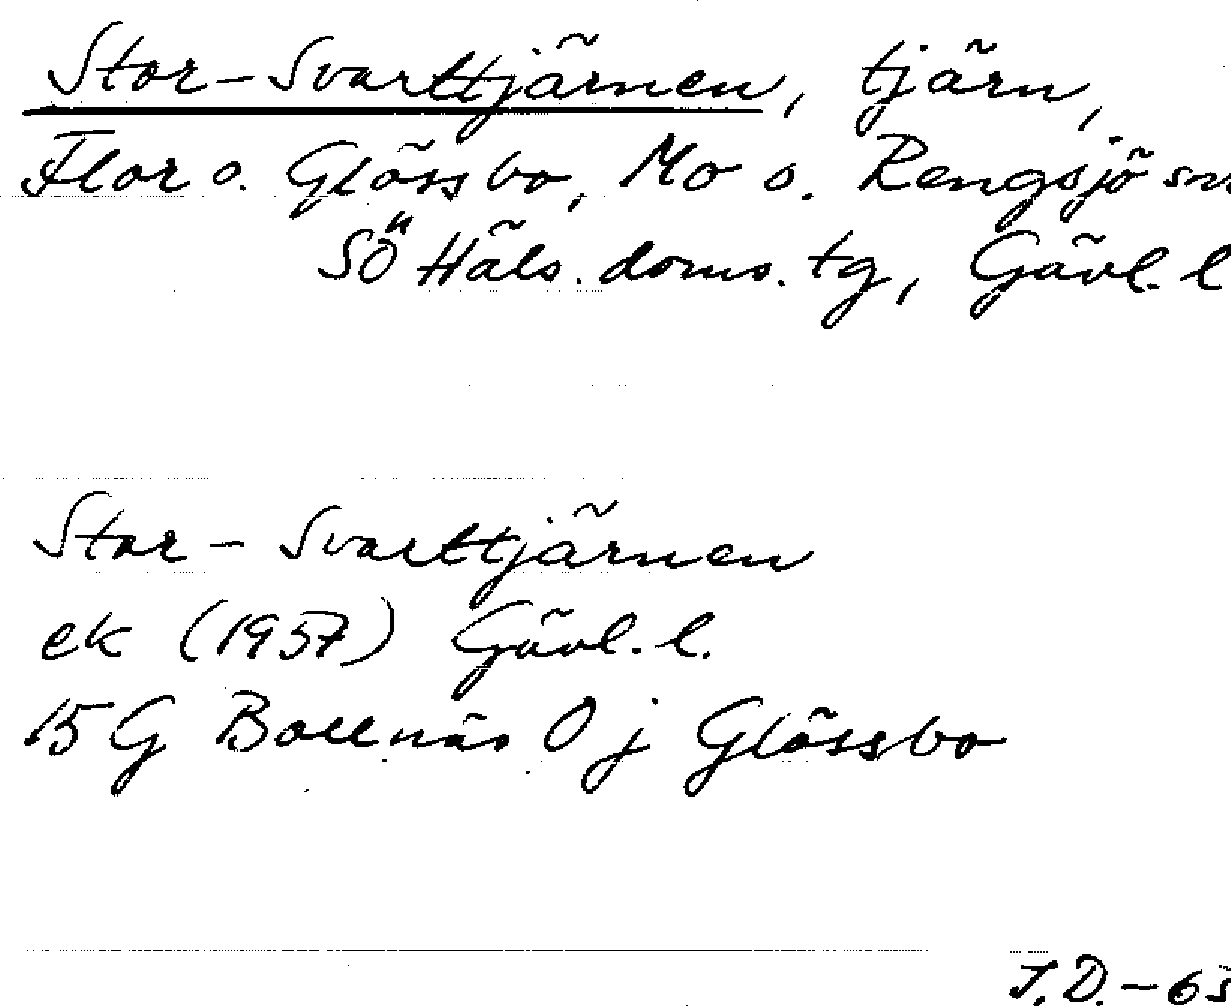 Stor-Svarttjärnen, tjärn,
Flor o. Glössbo, Mo o. Rengsjö sn
SÖ Häls. doms. tg, Gävl. l
Stor-Svarttjärnen
ek (1957) Gävl. l.
15 G Bollnäs 0 j Glössbo
J.D. - 63